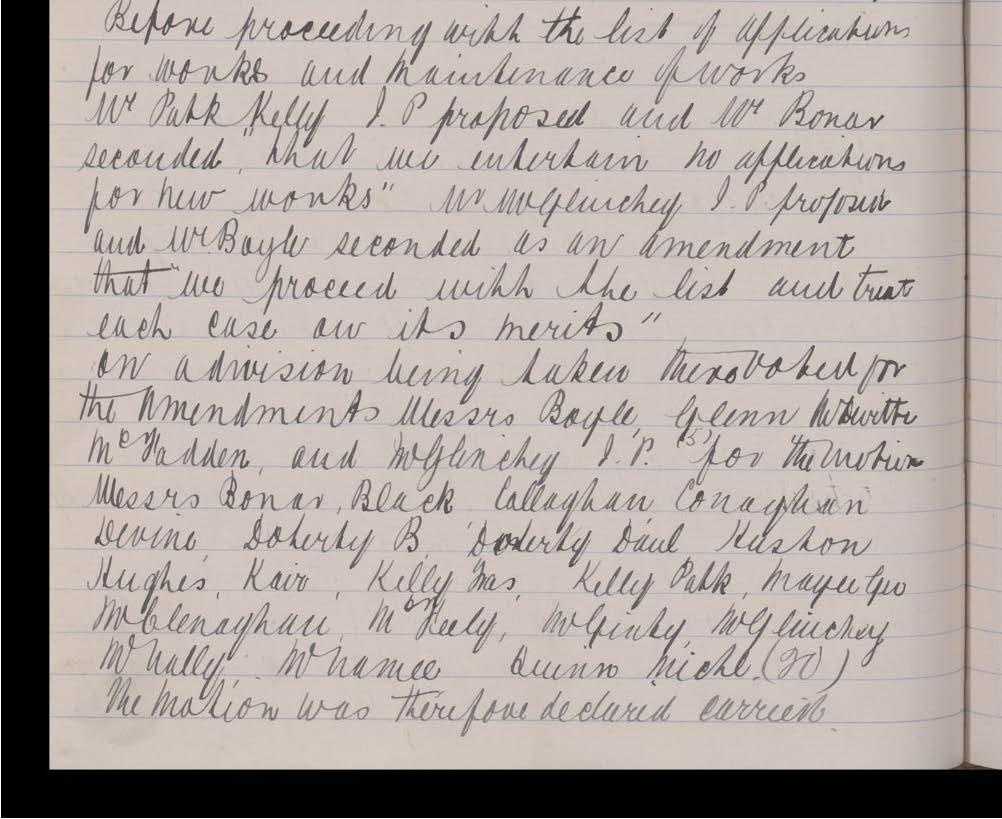 Before proceeding with the list of applications
for works and maintenance of works
Mr Patk Kelly J. P proposed and Mr Bonar
seconded, "that we entertain no applications
for new works" Mr McGlinchey J. P. proposed
and Mr Boyle seconded as an amendment
that "we proceed with the list and treat
each case on its merits"
On a division being taken there voted for
the Amendments Messrs Boyle, Glenn McDevitte
McFadden, and McGlinchey J. P. (5) for the motion
Messrs Bonar, Black Callaghan Conaghan
Devine, Doherty B, Doherty Danl Huston
Hughes, Karr, Kelly Jas, Kelly Patk, Mayer Geo
McClenaghan, McFeely, McGinty, McGlinchey
McNally, McNamee Quinn Michl. (20)
The Motion was therefore declared carried